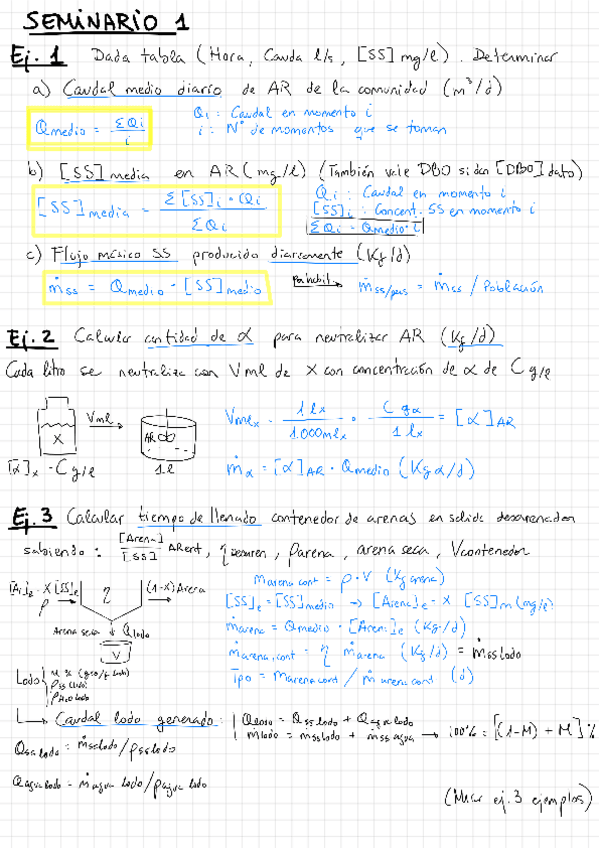 SEMINARIO 1
Ej. 1 Dada tabla (Hora, Cauda l/s, [SS] mg/l). Determinar
a) Caudal medio diario de AR de la comunidad (m³/d)
Qmedio = ΣQi / i
Qi: Caudal en momento i
i: Nº de momentos que se toman
b) [SS] media en AR (mg/l) (También vale DBO si dan [DBO] dato)
[SS] media = Σ[SS]i · Qi / ΣQi
Qi: Caudal en momento i
[SS]i: Concent. SS en momento i
ΣQi = Qmedio · i
c) Flujo másico SS producido diariamente (Kg/d)
ṁss = Qmedio · [SS]medio
Por habit. → ṁss/pers = ṁss / Población
Ej. 2 Calcular cantidad de α para neutralizar AR (Kg/d)
Cada litro se neutraliza con V ml de X con concentración de α de C g/l
X
V ml
AR
1 l
[α]x = C g/l
V mlx · 1 lx / 1.000 mlx · C gα / 1 lx = [α]AR
ṁα = [α]AR · Qmedio (Kgα/d)
Ej. 3 Calcular tiempo de llenado contenedor de arenas en salida desarenador
sabiendo: [Arena] / [SS] ARent, η desaren, ρarena, arena seca, Vcontenedor
[Ar]e = X [SS]e
ρ
η
(1-X) Arena
Arena seca ↓ Qlodo
V
Marena cont = ρ · V (Kg arena)
[SS]e = [SS]medio → [Arena]e = X [SS]m (mg/l)
ṁarena = Qmedio · [Aren]e (Kg/d)
ṁarena,cont = η ṁarena (Kg/d) = ṁss lodo
Tpo = Marena cont / ṁarena cont (d)
Lodo
ρss lodo
ρH2O lodo
↳ Caudal lodo generado:
Qlodo = Qss lodo + Qagua lodo
ṁlodo = ṁss lodo + ṁss agua → 100% = [(1-M) + M] %
Qss lodo = ṁss lodo / ρss lodo
Qagua lodo = ṁagua lodo / ρagua lodo
(Mirar ej. 3 ejemplos)